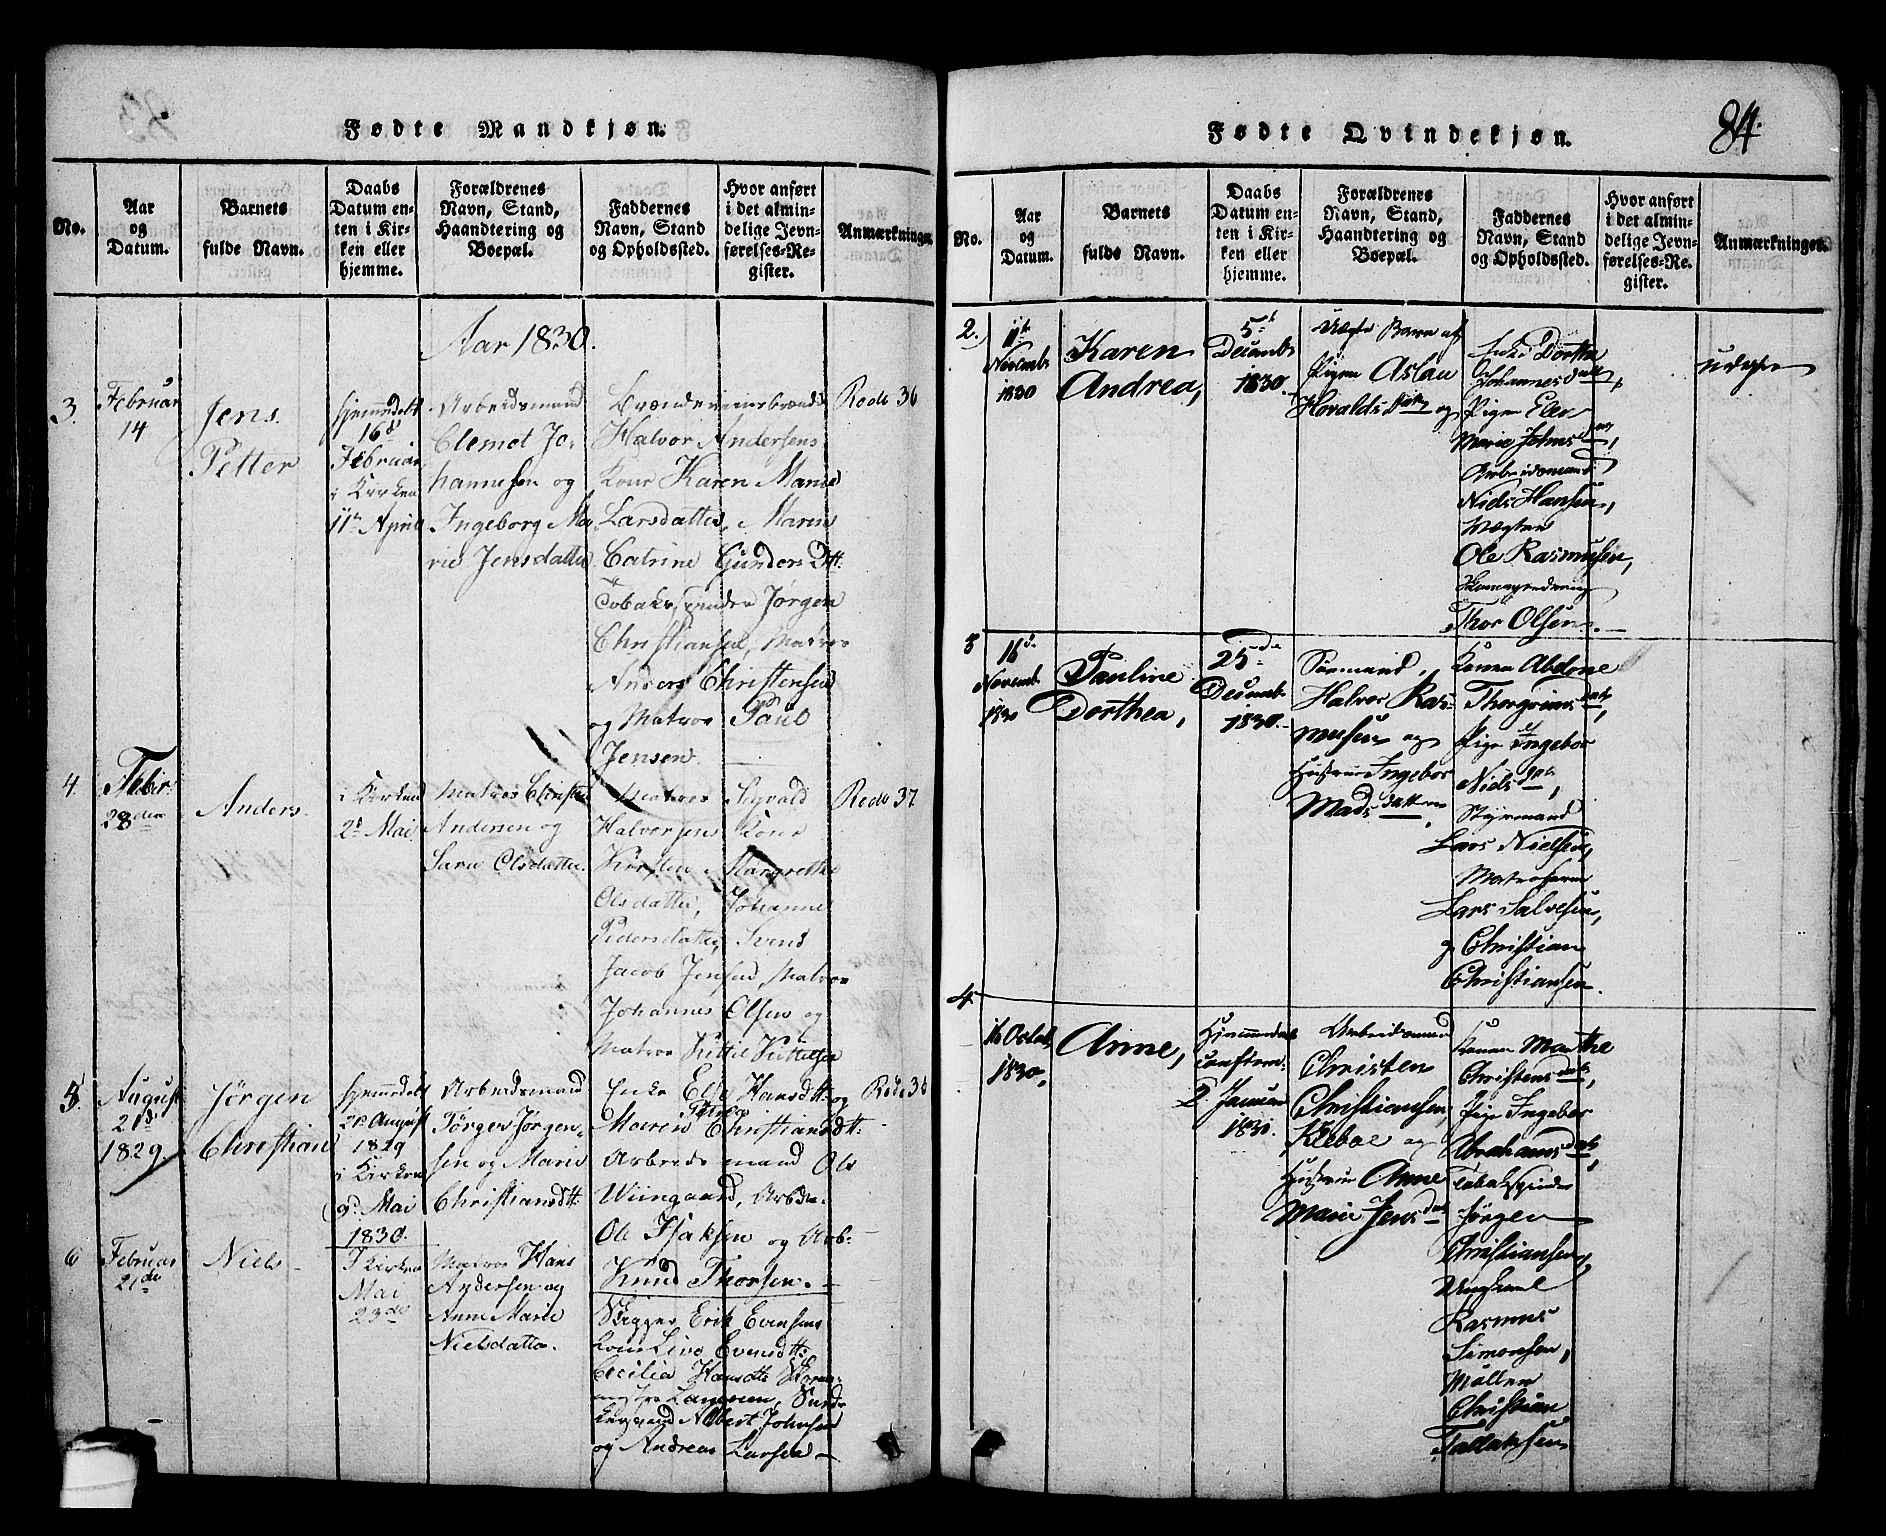 Fødte Mandkjøn.
No.
Aar
og
Datum.
Barnets
fulde Navn.
Daabs
Datum en-
ten i Kir-
ken eller
hjemme.
Forældrenes
Navn, Stand,
Haandtering og
Boepæl.
Faddernes
Navn, Stand
og Opholdssted.
Hvor anført
i det almin-
delige Jevn-
førelses-Re-
gister.
Anmærkninger.
Aar 1830.
3.
Februar
14
Jens
Petter
hjemmedøbt
16d
Februar
i Kirken
11te April
Arbeidsmand
Clemet Jo-
hannesen og
Ingeborg Ma-
rie Jensdatter
Halvor Andersens
Kone Karen Marie
Larsdatter, Maren
Catrine Gunders Dtt:
Tobakspinder Jørgen
Christiansen, Matros
Anders Christensen
og Matros Paul
Jensen
Rode 36
4.
Febr:
28den
Anders.
i Kirken
2d Mai
Matros Christen
Andersen og
Sara Olsdatter.
Matros Sigvald
Halvorsen Kone
Kirsten Margrethe
Olsdatter, Johanne
Pedersdatter, Svend
Jacob Jensen, Matros
Johannes Olsen og
Matros Kittil Kittilsen
Rode 37
5.
August
21d
1829
Jørgen
Christian
hjemmedøbt
28 August
1829
i Kirken
9d Mai
1830.
Arbeidsmand
Jørgen Jørgen-
sen og Maren
Christiansdtt:
Enke Else Hansdtt: og
Maren Christiansdtt:
Arbeidsmand Ole
Wiingaard, Arbdm.
Ole Isaksen og Arb:
Knud Thorsen. —
Rode 38
6
Februar
21de
Niels —
I Kirken
Mai
23de
Matros Hans
Andersen og
Anne Marie
Nielsdatter.
Skipper Erik Evensens
Kone Live Evensdtt:
Cecilia Hansdtt
Albert Johnsen
og Andreas Larsen —
84.
Fødte Qvindekjøn.
No.
Aar
og
Datum.
Barnets
fulde Navn.
Daabs
Datum en-
ten i Kir-
ken eller
hjemme.
Forældrenes
Navn, Stand,
Haandtering og
Boepæl.
Faddernes
Navn, Stand
og Opholdssted.
Hvor anført
i det almin-
delige Jevn-
førelses-Re-
gister.
Anmærkninger.
2.
11te
Novemb:
1830
Karen
Andrea,
5te
Decemb:
1830.
Uægte Barn af
Pigen Aslau
Hovaldsdatr og
Enke Dorthe
Johannesdatr,
Pigen Elen
Marie Johnsdatr,
Arbeidsmand
Niels Hansen,
Vægter
Ole Rasmusen,
Thor Olsen. —
uægte
3
16de
Novemb:
1830
Pauline
Dorthea,
25de
Decemb:
1830.
Søemand
Halvor Ras-
musen og
Hustrue Ingebor
Madsdatter.
Konen Abelone
Thorgrimsdatr,
Pige Ingebor
Nielsdatr,
Styrmand
Lars Nielsen,
Matroserne
Lars Salvesen,
og Christian
Christiansen.
4.
16 Octob:
1830.
Anne,
Hjemmedøbt
confirm:
2. Januar
1831.
Arbeidsmand
Christen
Christiansen
Kleboe og
Hustrue Anne
Marie Jensdatr
Konen Marthe
Christensdatr,
Pige Ingebor
Abrahamsdatr,
Tobakspinder
Jørgen
Christiansen,
Ungkarl
Rasmus
Simonsen,
Møller
Christian
Tallaksen.